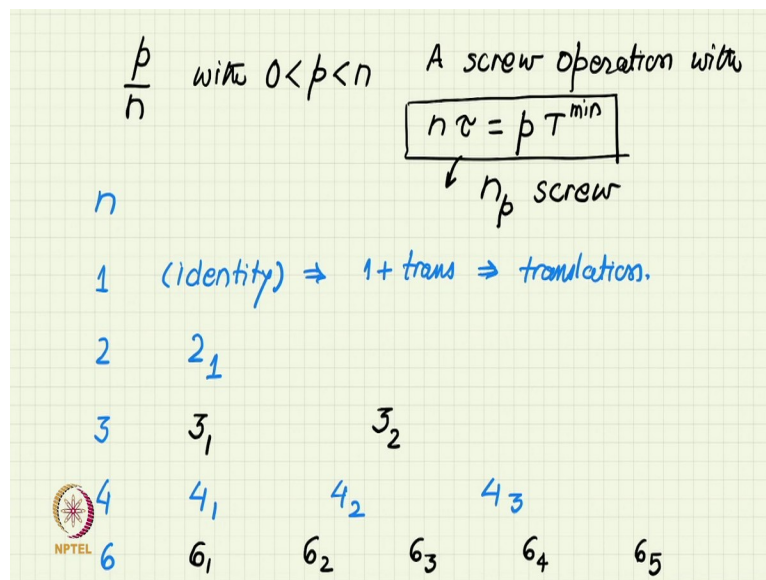 p/n with 0<p<n A screw operation with
nτ = pT^min
n_p screw
n
1 (identity) ⇒ 1 + trans ⇒ translation.
2 2_1
3 3_1 3_2
4 4_1 4_2 4_3
NPTEL
6 6_1 6_2 6_3 6_4 6_5